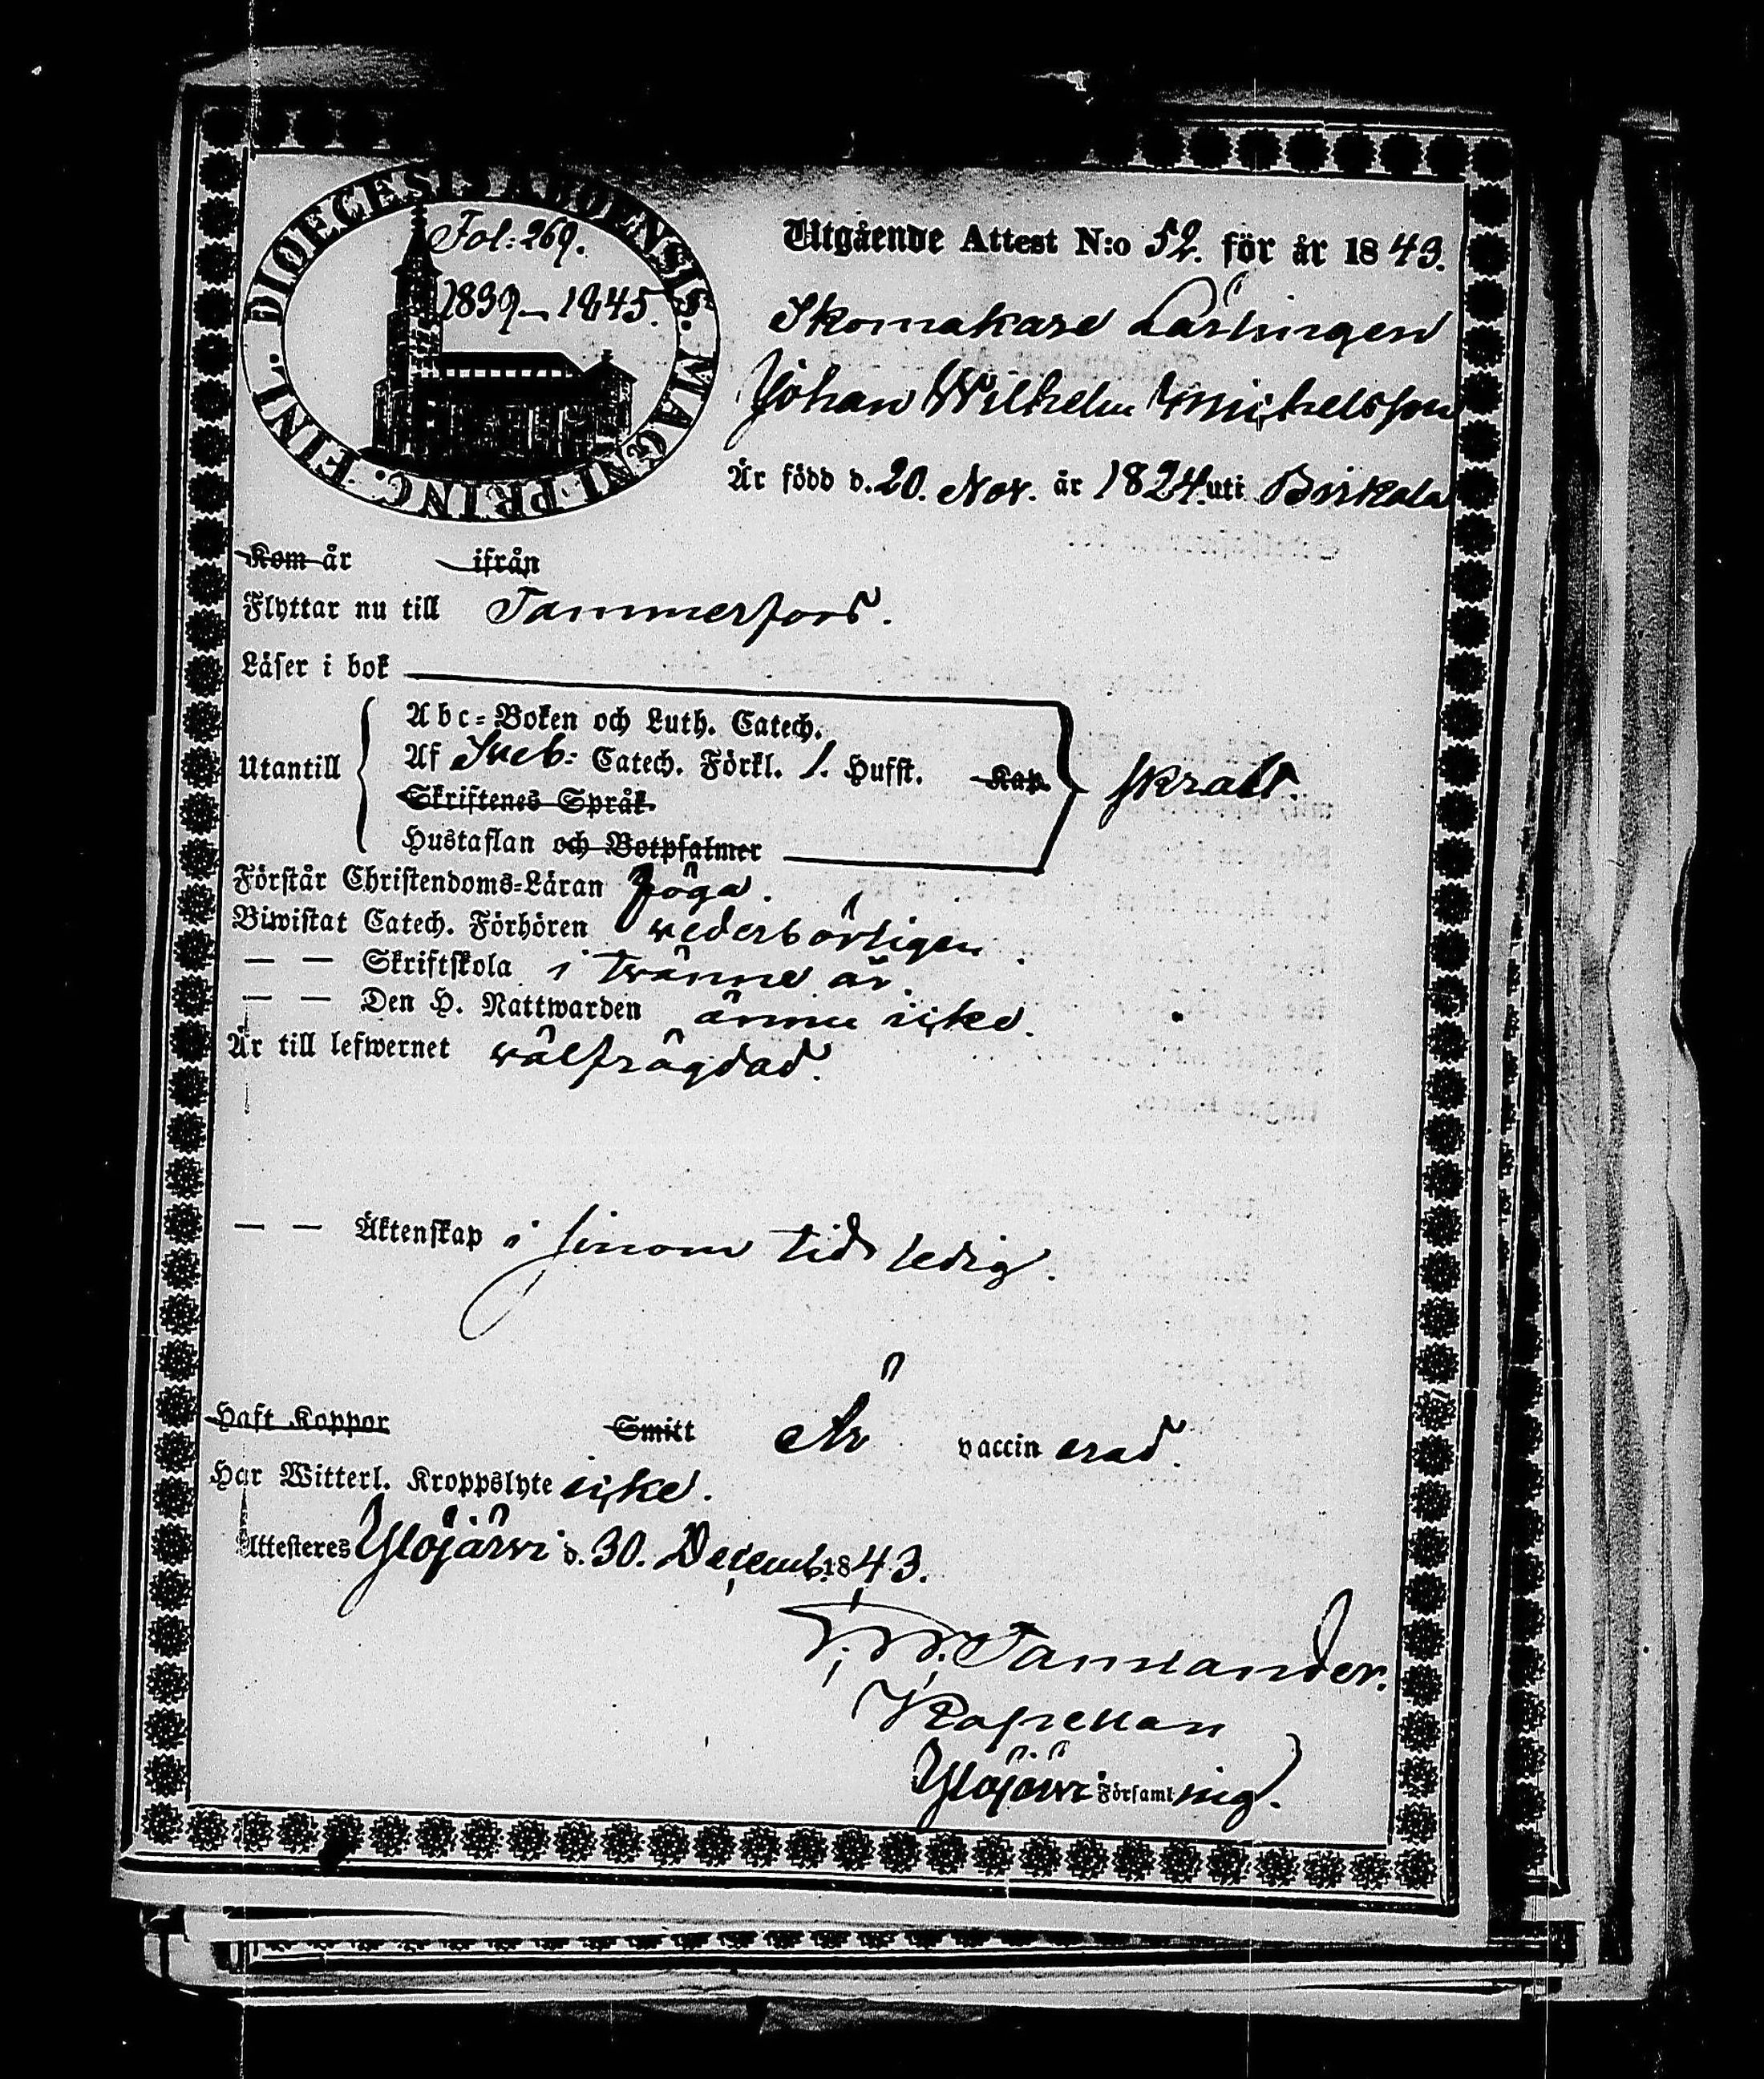 DIOECESIS ABOENSIS. MAGNI PRINC. FINL.
Fol: 269.
1839–1845.
Utgående Attest N:o 52. för år 1843.
Skomakare Lärlingen
Johan Wilhelm Michelsson
Är född d. 20. Nov. år 1824. uti Birkala
Kom år ifrån
Flyttar nu till Tammerfors.
Läser i bok
Abc-Boken och Luth. Catech.
Utantill
Af Sveb: Catech. Förkl. 1. Hufst. Kap.
skralt.
Skriftenes Språk.
Hustaflan och Botpsalmer
Förstår Christendoms-Läran föga.
Biwistat Catech. Förhören wederbörligen.
— — Skriftskola i twänne år.
— — Den H. Nattwarden ännu icke.
Är till lefwernet wälfrägdad.
— — Äktenskap i sinom tid ledig.
Haft Koppor Smitt Är vaccinerad.
Har Witterl. Kroppslyte icke.
Attesteres Ylöjärwi d. 30. Decemb. 1843.
Tammander.
Kapellan
Ylöjärwi Församlning.